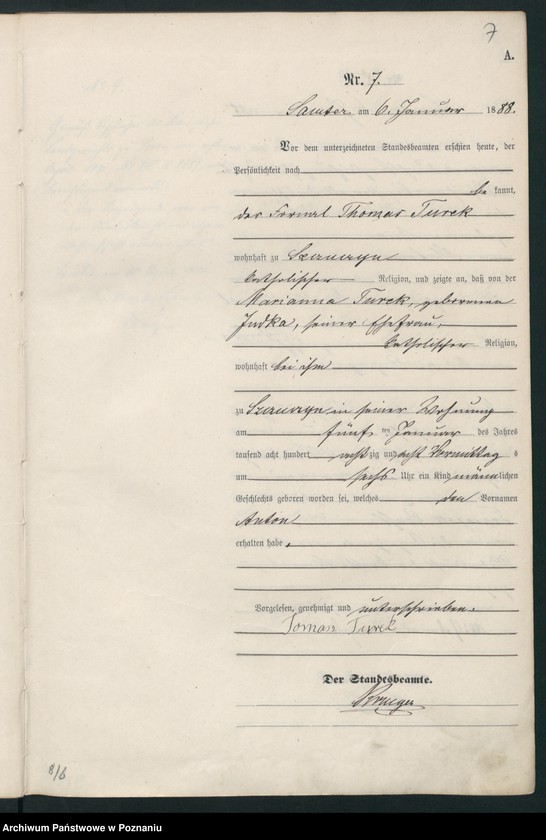 7
A.
Nr. 7.
Samter am 6. Januar 1888.
Vor dem unterzeichneten Standesbeamten erschien heute, der
Persönlichkeit nach
be kannt,
der Fornal Thomas Turek
wohnhaft zu
katholischer Religion, und zeigte an, daß von der
Marianna Turek, geborenen
Judka, seiner Ehefrau,
katholischer Religion,
wohnhaft bei ihm
zu in seiner Wohnung
am fünf ten Januar des Jahres
tausend acht hundert acht zig und acht Vormittag s
um sechs Uhr ein Kind männlichen
Geschlechts geboren worden sei, welches den Vornamen
Anton
erhalten habe.
Vorgelesen, genehmigt und unterschrieben.
Toman Turek
Der Standesbeamte.
8/6
Archiwum Państwowe w Poznaniu